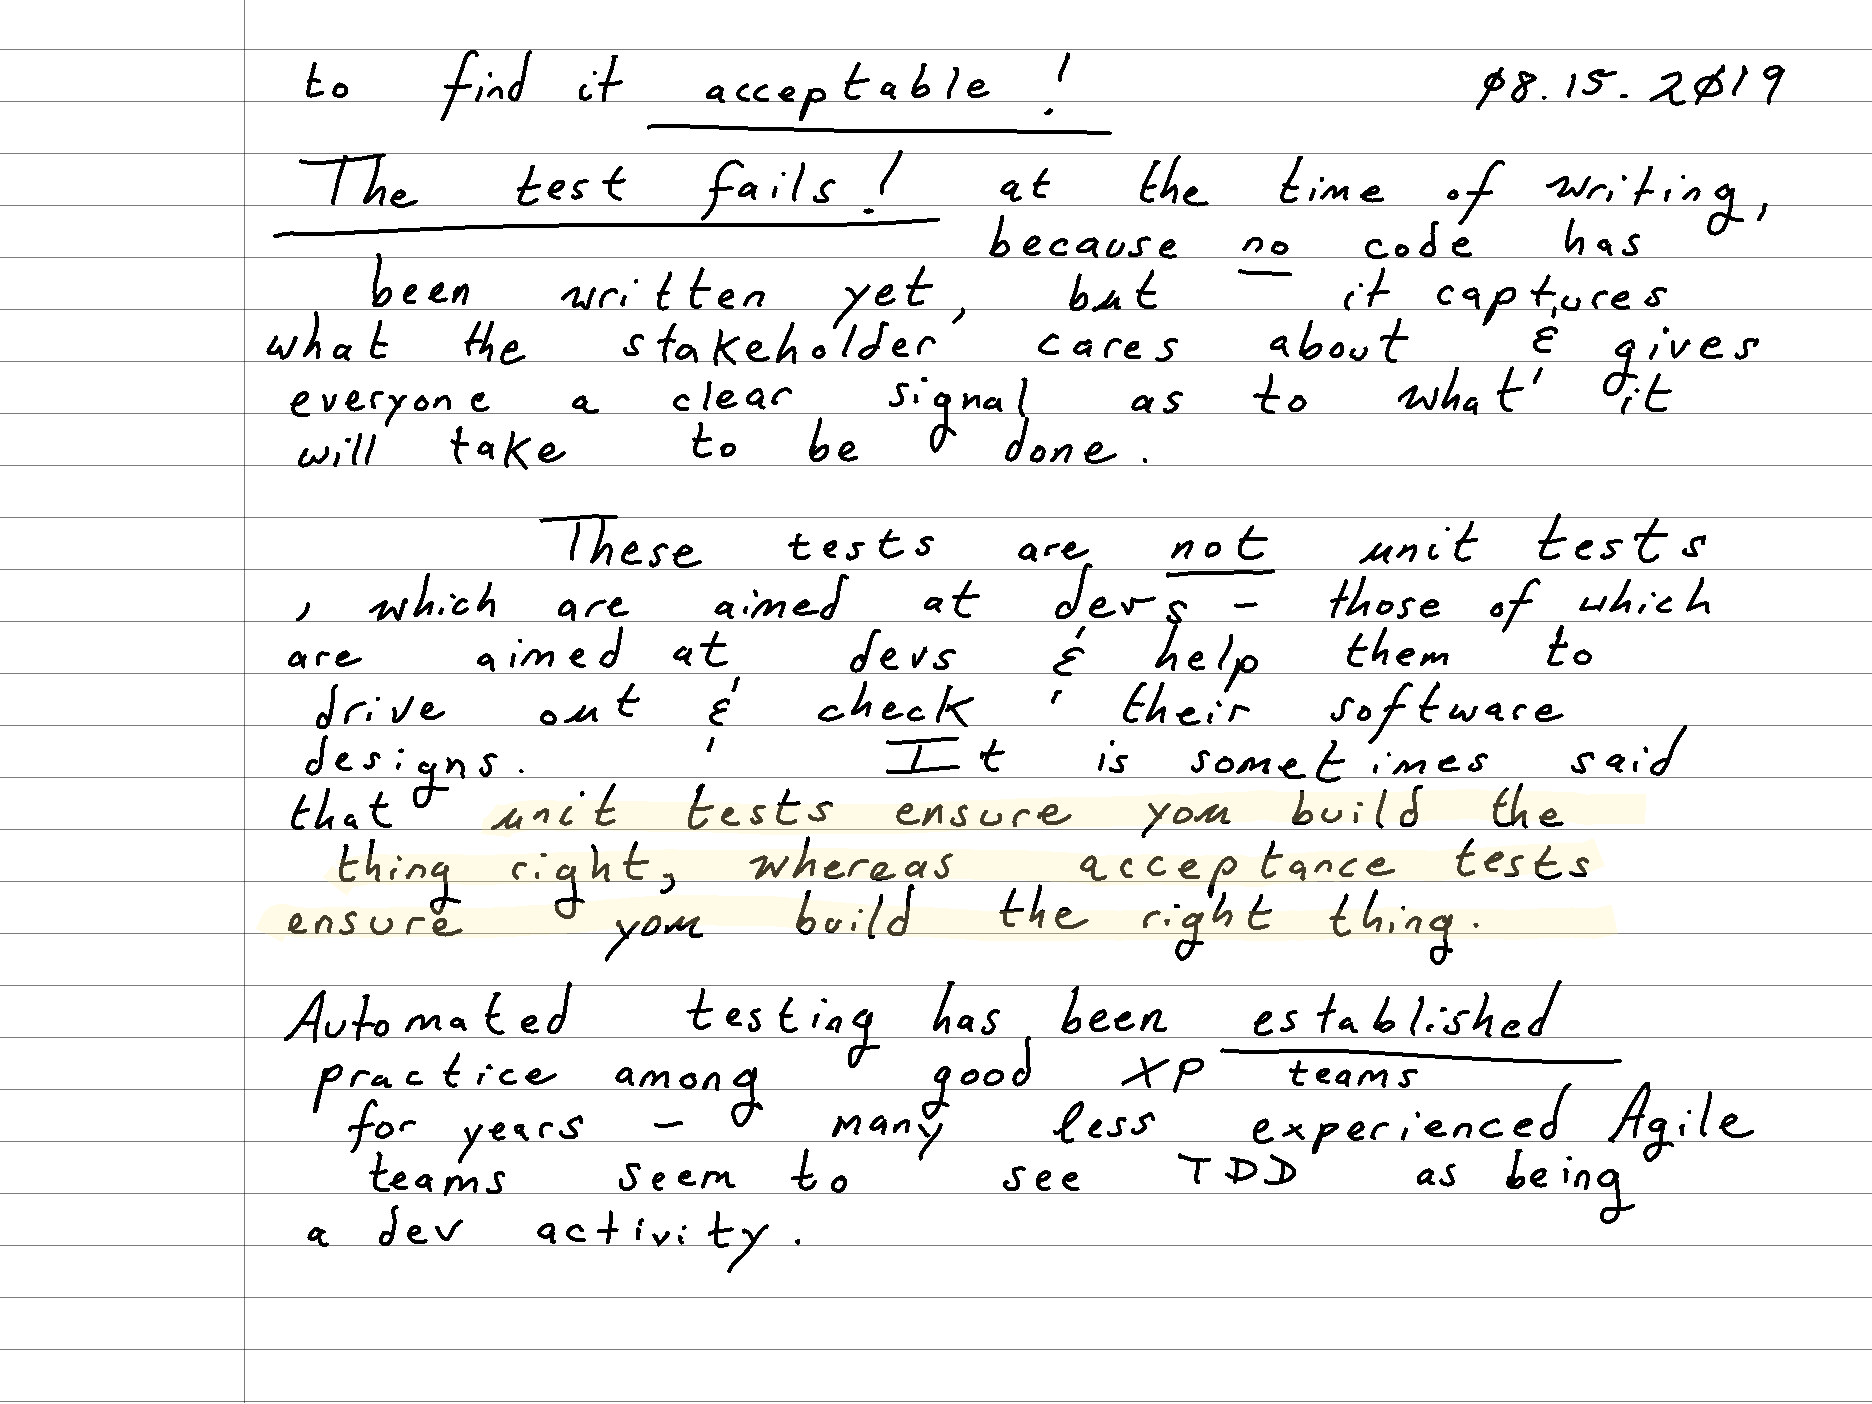 to find it acceptable! 08.15.2019
The test fails! at the time of writing,
because no code has
been written yet, but it captures
what the stakeholder cares about & gives
everyone a clear signal as to what it
will take to be done.
These tests are not unit tests
, which are aimed at devs - those of which
are aimed at devs & help them to
drive out & check their software
designs. It is sometimes said
that unit tests ensure you build the
thing right, whereas acceptance tests
ensure you build the right thing.
Automated testing has been established
practice among good XP teams
for years - many less experienced Agile
teams seem to see TDD as being
a dev activity.